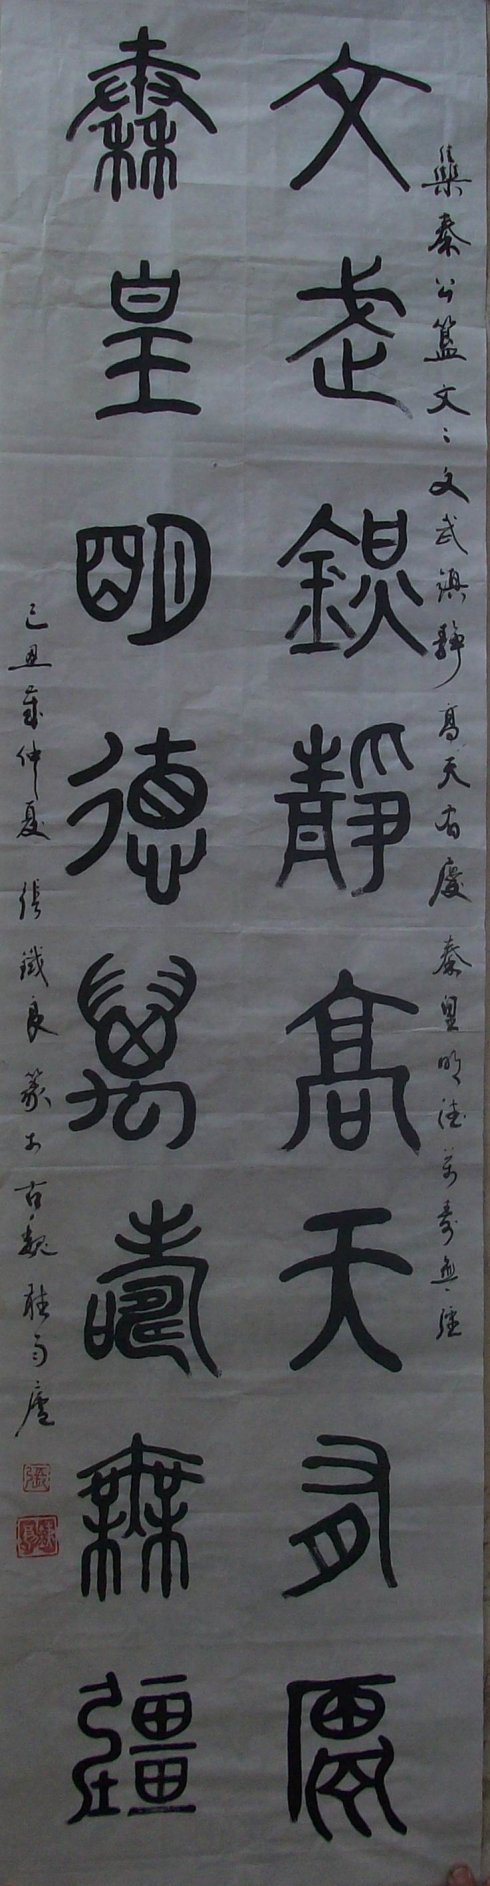 集秦公簋文：文武鎮靜高天有慶秦皇明德萬壽無疆
文武鎮靜高天有慶
秦皇明德萬壽無疆
己丑歲仲夏張鐵良篆於古魏聽雨廬